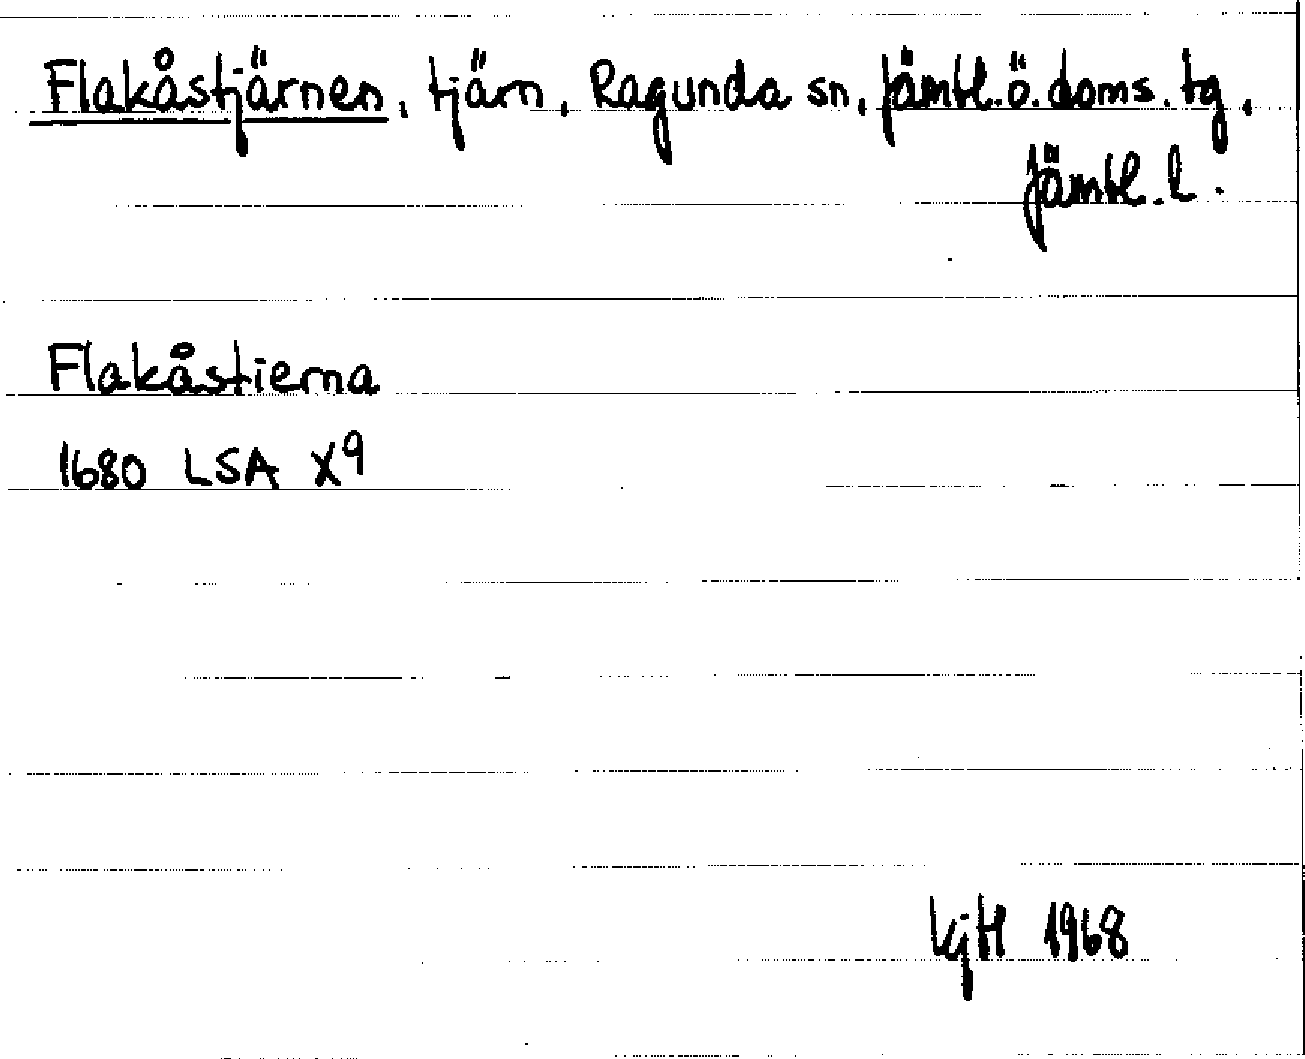 Flakåstjärnen, tjärn, Ragunda sn, Jämtl. ö. doms. tg,
Jämtl. l.
Flakåstierna
1680 LSA X9
KjH 1968